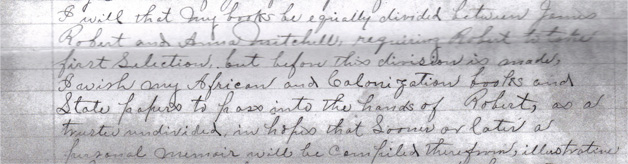 I will that my books be equally divided between James
Robert and Anna Mitchell, requiring Robert to take
first Selection, but before this division is made,
I wish my African and Colonization books and
State papers to pass into the hands of Robert, as a
trustee undivided, in hopes that Sooner or later a
personal memoir will be compiled therefrom, illustrative